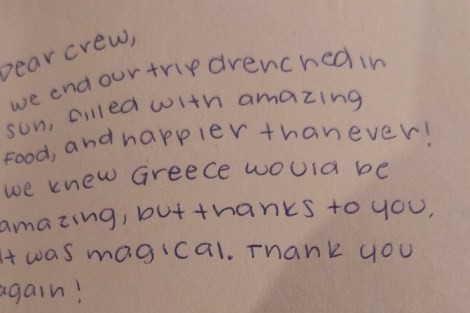 Dear crew,
we end our trip drenched in
sun, filled with amazing
food, and happier than ever!
we knew Greece would be
amazing, but thanks to you,
It was magical. Thank you
again!